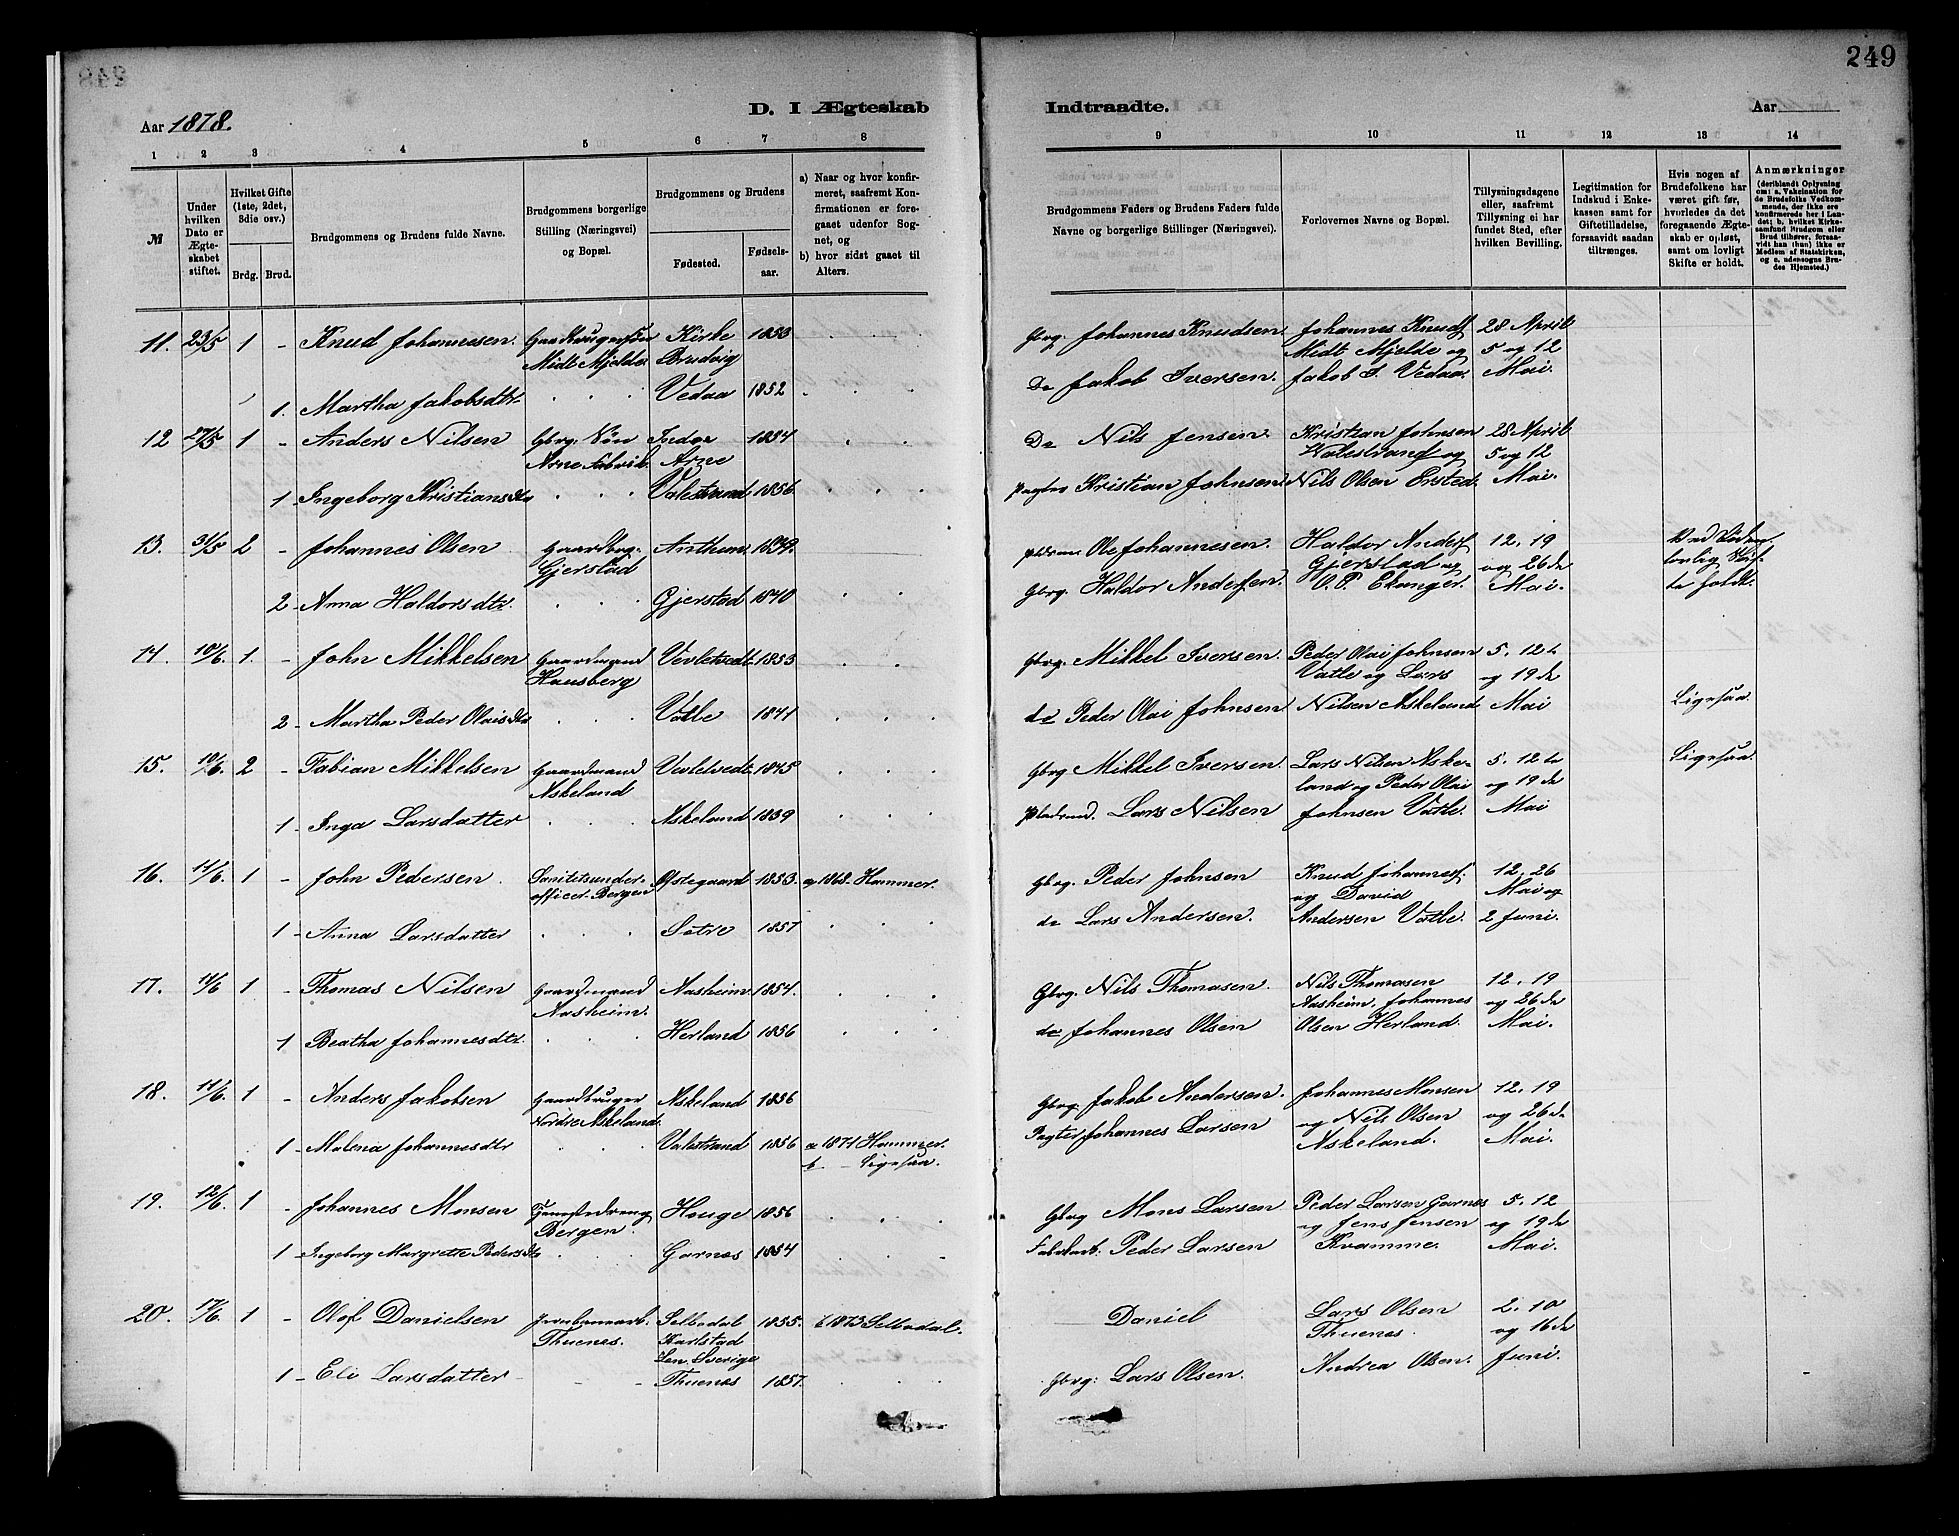 249
Aar 1878.
D. I Ægteskab Indtraadte.
Aar
1 2 3 4 5 6 7 8 9 10 11 12 13 14
№
Under hvilken Dato er Ægteskabet stiftet.
Hvilket Gifte (1ste, 2det, 3die osv.)
Brdg. Brud.
Brudgommens og Brudens fulde Navne.
Brudgommens borgerlige Stilling (Næringsvei) og Bopæl.
Brudgommens og Brudens
Fødested.
Fødselsaar.
a) Naar og hvor konfirmeret, saafremt Konfirmationen er foregaaet udenfor Sognet, og
b) hvor sidst gaaet til Alters.
Brudgommens Faders og Brudens Faders fulde Navne og borgerlige Stillinger (Næringsvei).
Forlovernes Navne og Bopæl.
Tillysningsdagene eller, saafremt Tillysning ei har fundet Sted, efter hvilken Bevilling.
Legitimation for Indskud i Enkekassen samt for Giftetilladelse, forsaavidt saadan tiltrænges.
Hvis nogen af Brudefolkene har været gift før, hvorledes da det foregaaende Ægteskab er opløst, samt om lovligt Skifte er holdt.
Anmærkninger
(deriblandt Oplysning om: a. Vakcination for de Brudefolks Vedkommende, der ikke ere konfirmerede her i Landet; b. hvilket Kirkesamfund Brudgom eller Brud tilhører, forsaavidt han (hun) ikke er Medlem af Statskirken, og c. udensogns Brudes Hjemsted.)
11. 23/5 1 - Knud Johannesen. Midt Mjelde. Kirke Brudvig 1853 Gbrg. Johannes Knudsen Johannes Knuds. Midt Mjelde og 28 April 5 og 12 Mai.
1. Martha Jakobsdtr. Vedaa 1852 Do Jakob Iversen. Jakob I. Vedaa.
12 27/5 1 - Anders Nilsen Gbrg. Arne Fabrik. Indre Arne 1834 Do Nils Jensen. Kristian Johnsen Valestrand og 28 April 5 og 12 Mai.
1 - Ingeborg Kristiansdtr Valestrand 1856. Kristian Johnsen Nils Olsen Ersted.
13. 31/5 2 - Johannes Olsen Gaardbrg. Gjerstad 1839. Ole Johannesen. Haldor Anders. Gjerstad og 12. 19 og 26de Mai.
2 - Anna Haldorsdtr. Gjerstad 1840 Gbrg. Haldor Andersen. O. P. Ekanger. holdt.
14. 10/6. 1. - John Mikkelsen Gaardmand Hausberg Vevletvedt 1855 Gbrg. Mikkel Iversen. Peder Olai Johnsen Vatle og Lars 5. 12te og 19de Mai
2 - Martha Peder Olaisdtr Vatle 1841 do Peder Olai Johnsen Nilsen Askeland Ligesaa.
15. 10/6. 2 - Fabian Mikkelsen Gaardmand Askeland Vevletvedt 1845 Gbrg Mikkel Iversen. Lars Nilsen Askeland og Peder Olai 5. 12te og 19de Mai Ligesaa.
1 - Inga Larsdatter Askeland 1839 Lars Nilsen Johnsen Vatle.
16. 11/6. 1 - John Pedersen. Sanitetsunderofficer. Bergen Østegaard 1853. a 1868. Hammer. Gbrg. Peder Johnsen Knud Johannes. og David 12. 26 Mai og
1 - Anna Larsdatter Sætre 1857 do Lars Andersen. Andersen Vatle. 2 Juni.
17. 11/6 1 - Thomas Nilsen Gaardmand Aasheim. Aasheim. 1854. Gbrg. Nils Thomasen. Nils Thomasen Aasheim. Johannes 12. 19 og 26de
1 Beatha Johannesdtr. Herland 1856 do Johannes Olsen Olsen Herland. Mai.
18. 11/6 1 - Anders Jakobsen Gaardbruger Nordre Askeland. Askeland 1856 Gbrg. Jakob Andersen. Johannes Monsen og Nils Olsen 12. 19 og 26de
1 - Malena Johannesdtr Valestrand 1856 a 1871 Hammer. b. - Ligesaa. Pagter Johannes Larsen Askeland. Mai.
19. 12/6 1 - Johannes Monsen Tjenestedreng Bergen Houge 1856 Gbrg Mons Larsen Peder Larsen Garnes og Jens Jensen 5. 12 og 19de
1 - Ingeborg Margrethe Pedersdtr Garnes 1854 Fabrikarb. Peder Larsen Kvamme. Mai.
20. 17/6. 1 - Olof Danielsen Jernbanearb. Thuenes. Selbodal Karlstad Len. Sverige 1855. a 1873 Selbodal. Daniel Lars Olsen Thuenes. 2. 10 og 16de
1 - Eli Larsdatter Thuenes 1857. Gbrg: Lars Olsen. Andrea Olsen. Juni.